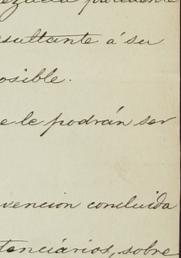 resultante á su
posible.
e le podrán ser
vencion concluida
tenciários, sobre